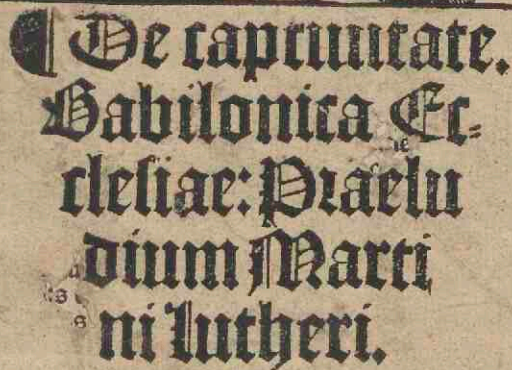 ¶ De captiuitate.
Babilonica Ec-
clesiae: Praelu
dium Marti
ni Lutheri.